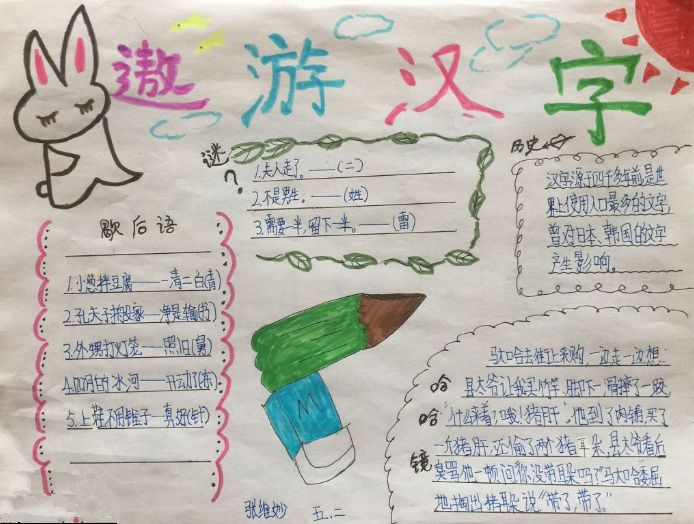 遨游汉字
谜
?
1.夫人走了。——(二)
2.不是男生。——(姓)
3.需要一半,留下一半。——(雷)
历史
汉字源于四千多年前,是世
界上使用人口最多的文字,
曾对日本、韩国的文字
产生影响。
歇后语
1.小葱拌豆腐——一清二白(青)
2.孔夫子搬家——净是输(书)
3.外甥打灯笼——照旧(舅)
4.四月的冰河——开动了(冻)
5.上鞋不用锥子——真好(针)
哈哈镜
马大哈去街上采购,一边走一边想:
县太爷让我买竹竿,脚下一滑摔了一跤
"什么来着?哦!猪肝"。他到了肉铺买了
一点猪肝,还偷了两个猪耳朵,县太爷看后
臭骂他一顿问"你没带耳朵吗?"马大哈委屈
地掏出猪耳朵说"带了,带了。"
M
张维妙 五.二